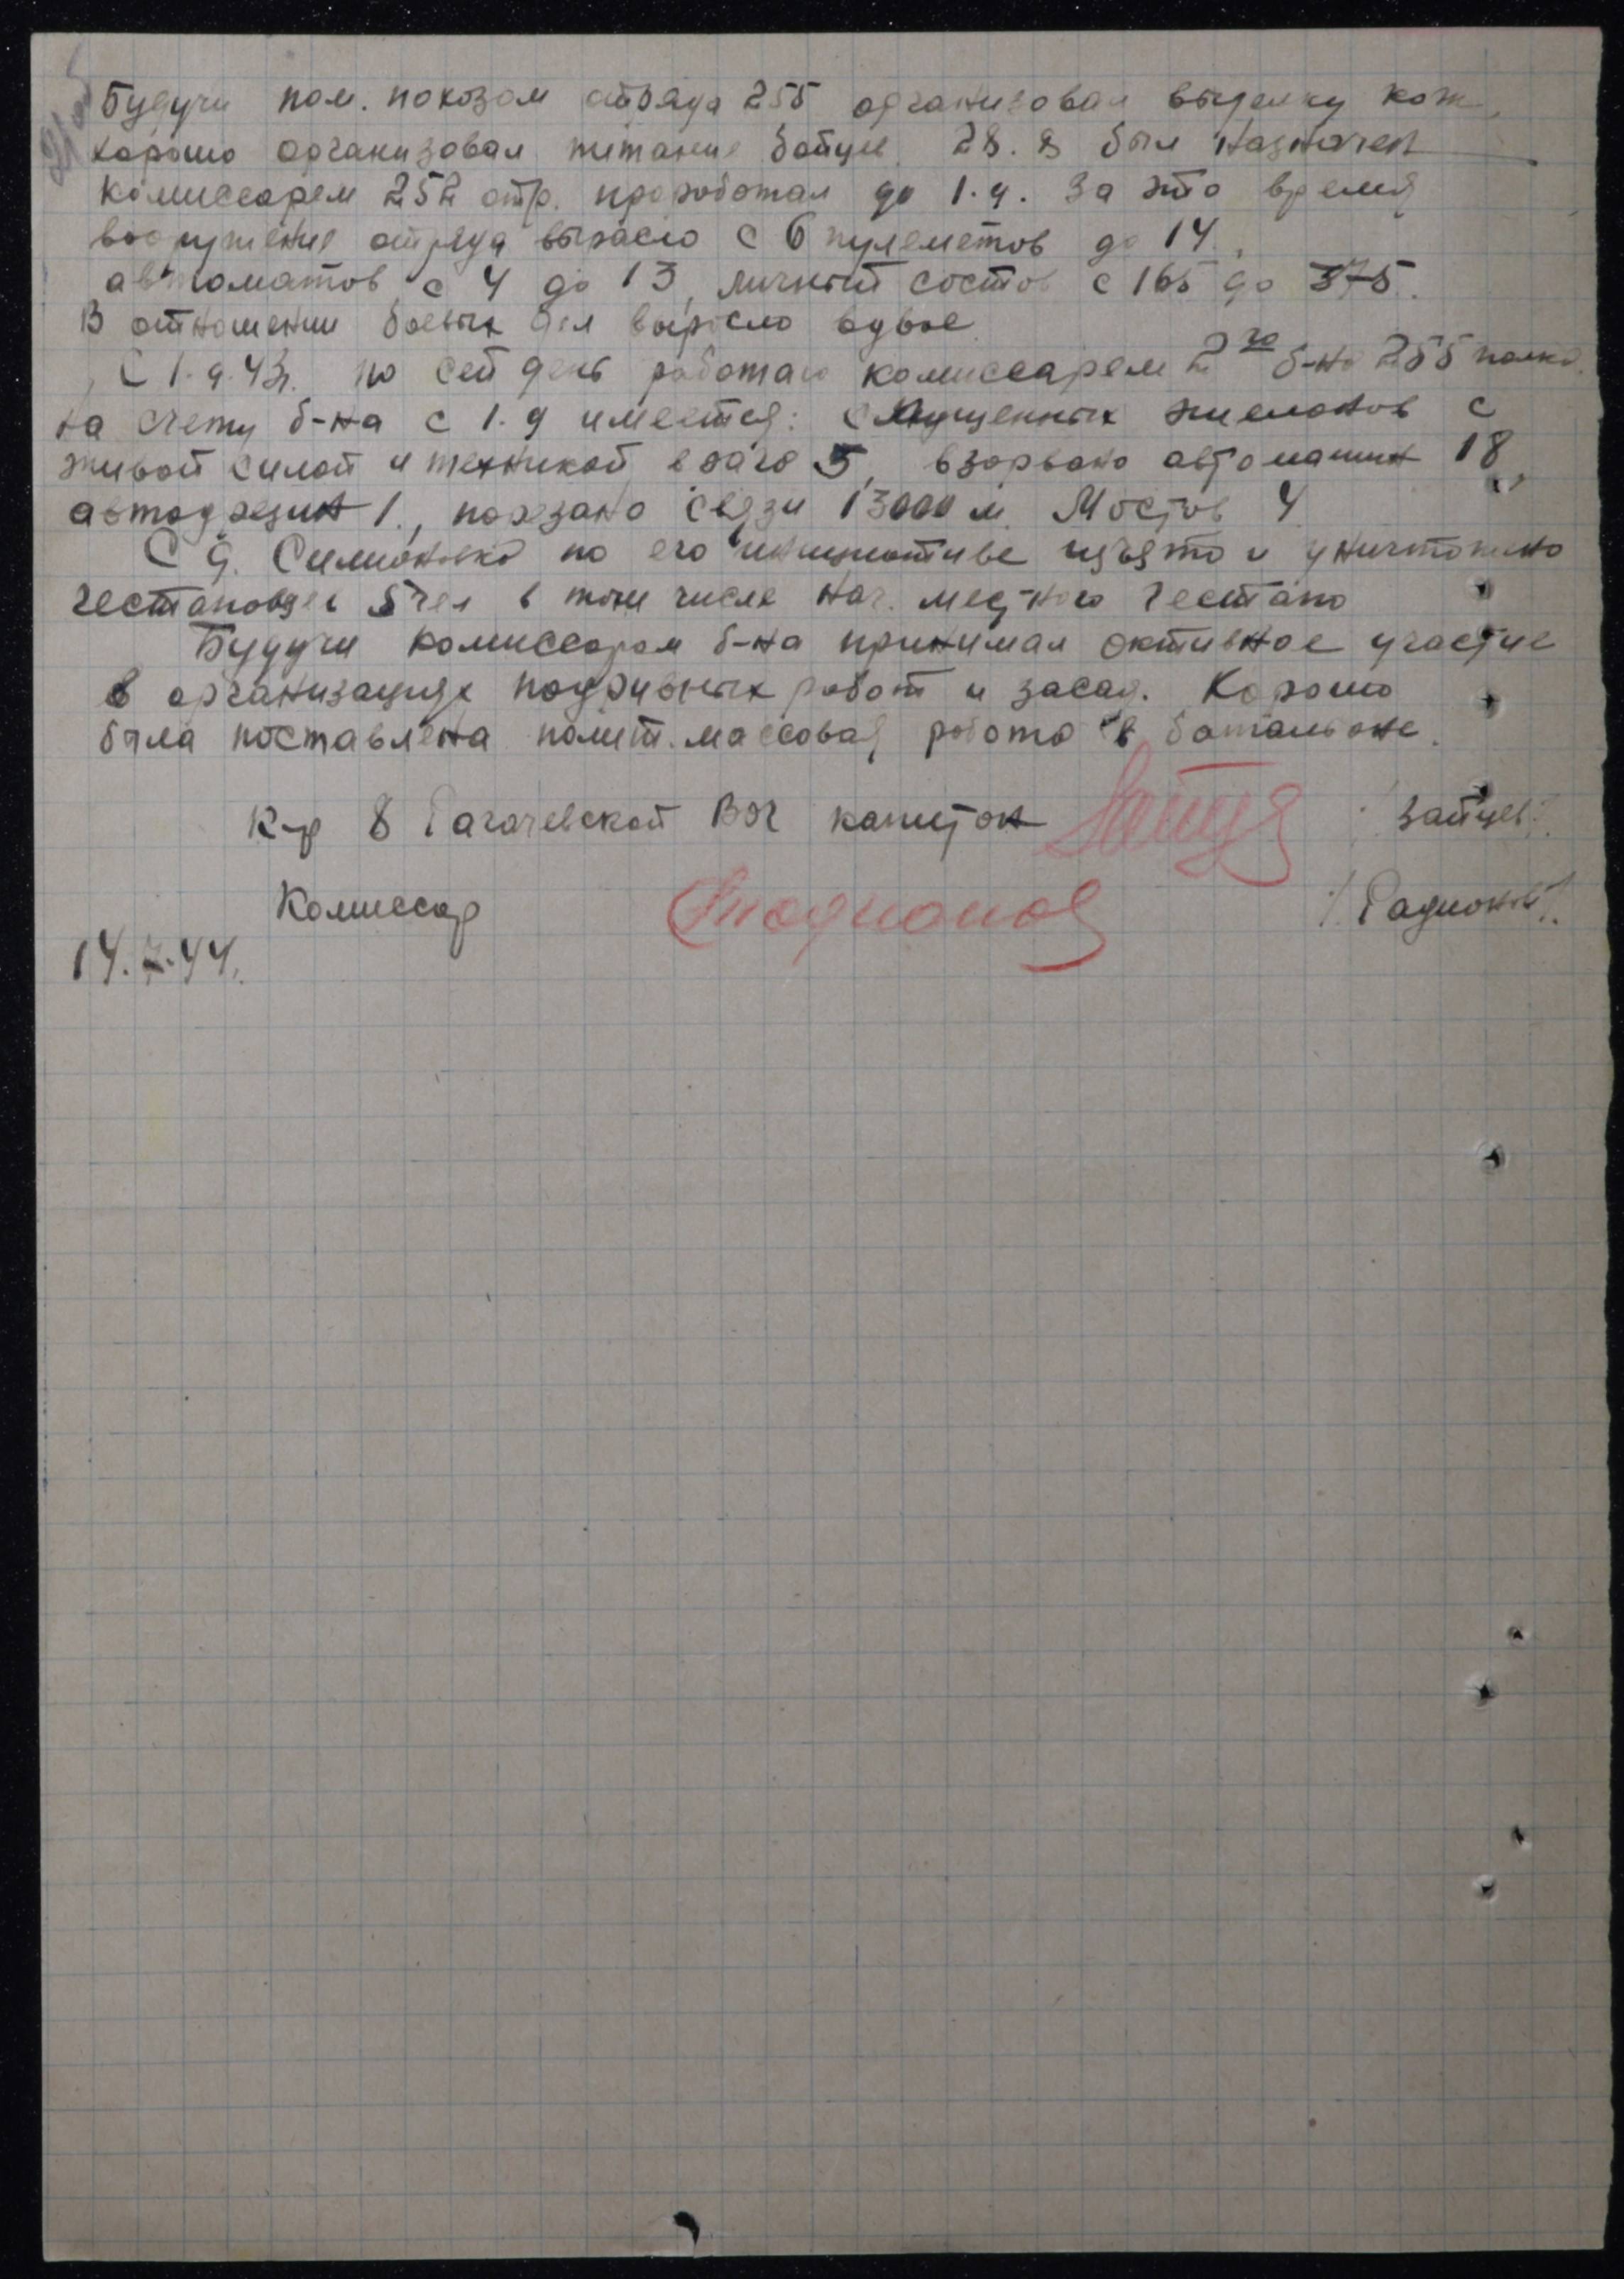 Будучи пом. похозом отряда 255 организовал выделку кож,
хорошо организовал питание бойцов. 28.8 был назначен
комиссарем 252 отр. проработал до 1.9. За это время
вооружение отряда выросло с 6 пулеметов до 14,
автоматов с 4 до 13, личный состов с 165 до 375.
В отношении боевых дел выросло вдвое.
С 1.9.43г. по сей день работаю комиссарем 2го б-на 255 полка.
На счету б-на с 1.9 имеется: спущенных эшелонов с
живой силой и техникой врага 5, взорвано автомашин 18,
автодрезин 1., порезано связи 13000 м. Мостов 4.
С д. по его инициативе изъято и уничтожено
гестаповцев 5 чел в том числе нач. местного гестапо
Будучи комиссаром б-на принимал активное участие
в организациях подрывных работ и засад. Хорошо
была поставлена полит. массовая работа в батальоне.
К-р 8 Рагачевской ВОГ капитан Зайцев /Зайцев/.
Комиссар Родионов /Радионов/.
14.7.44.